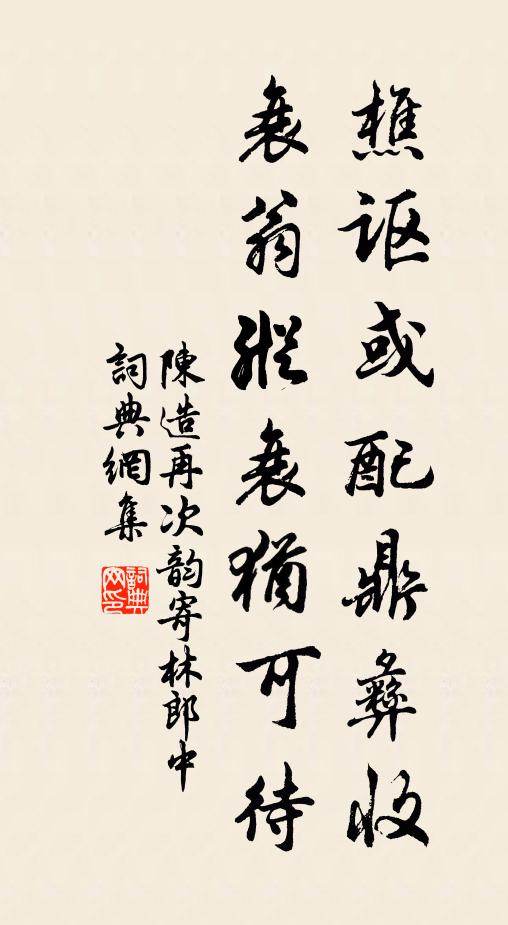 樵讴或配鼎彝收
衰翁縱衰猶可待
陳造再次韵寄林郎中
詞典網集
詞典網印